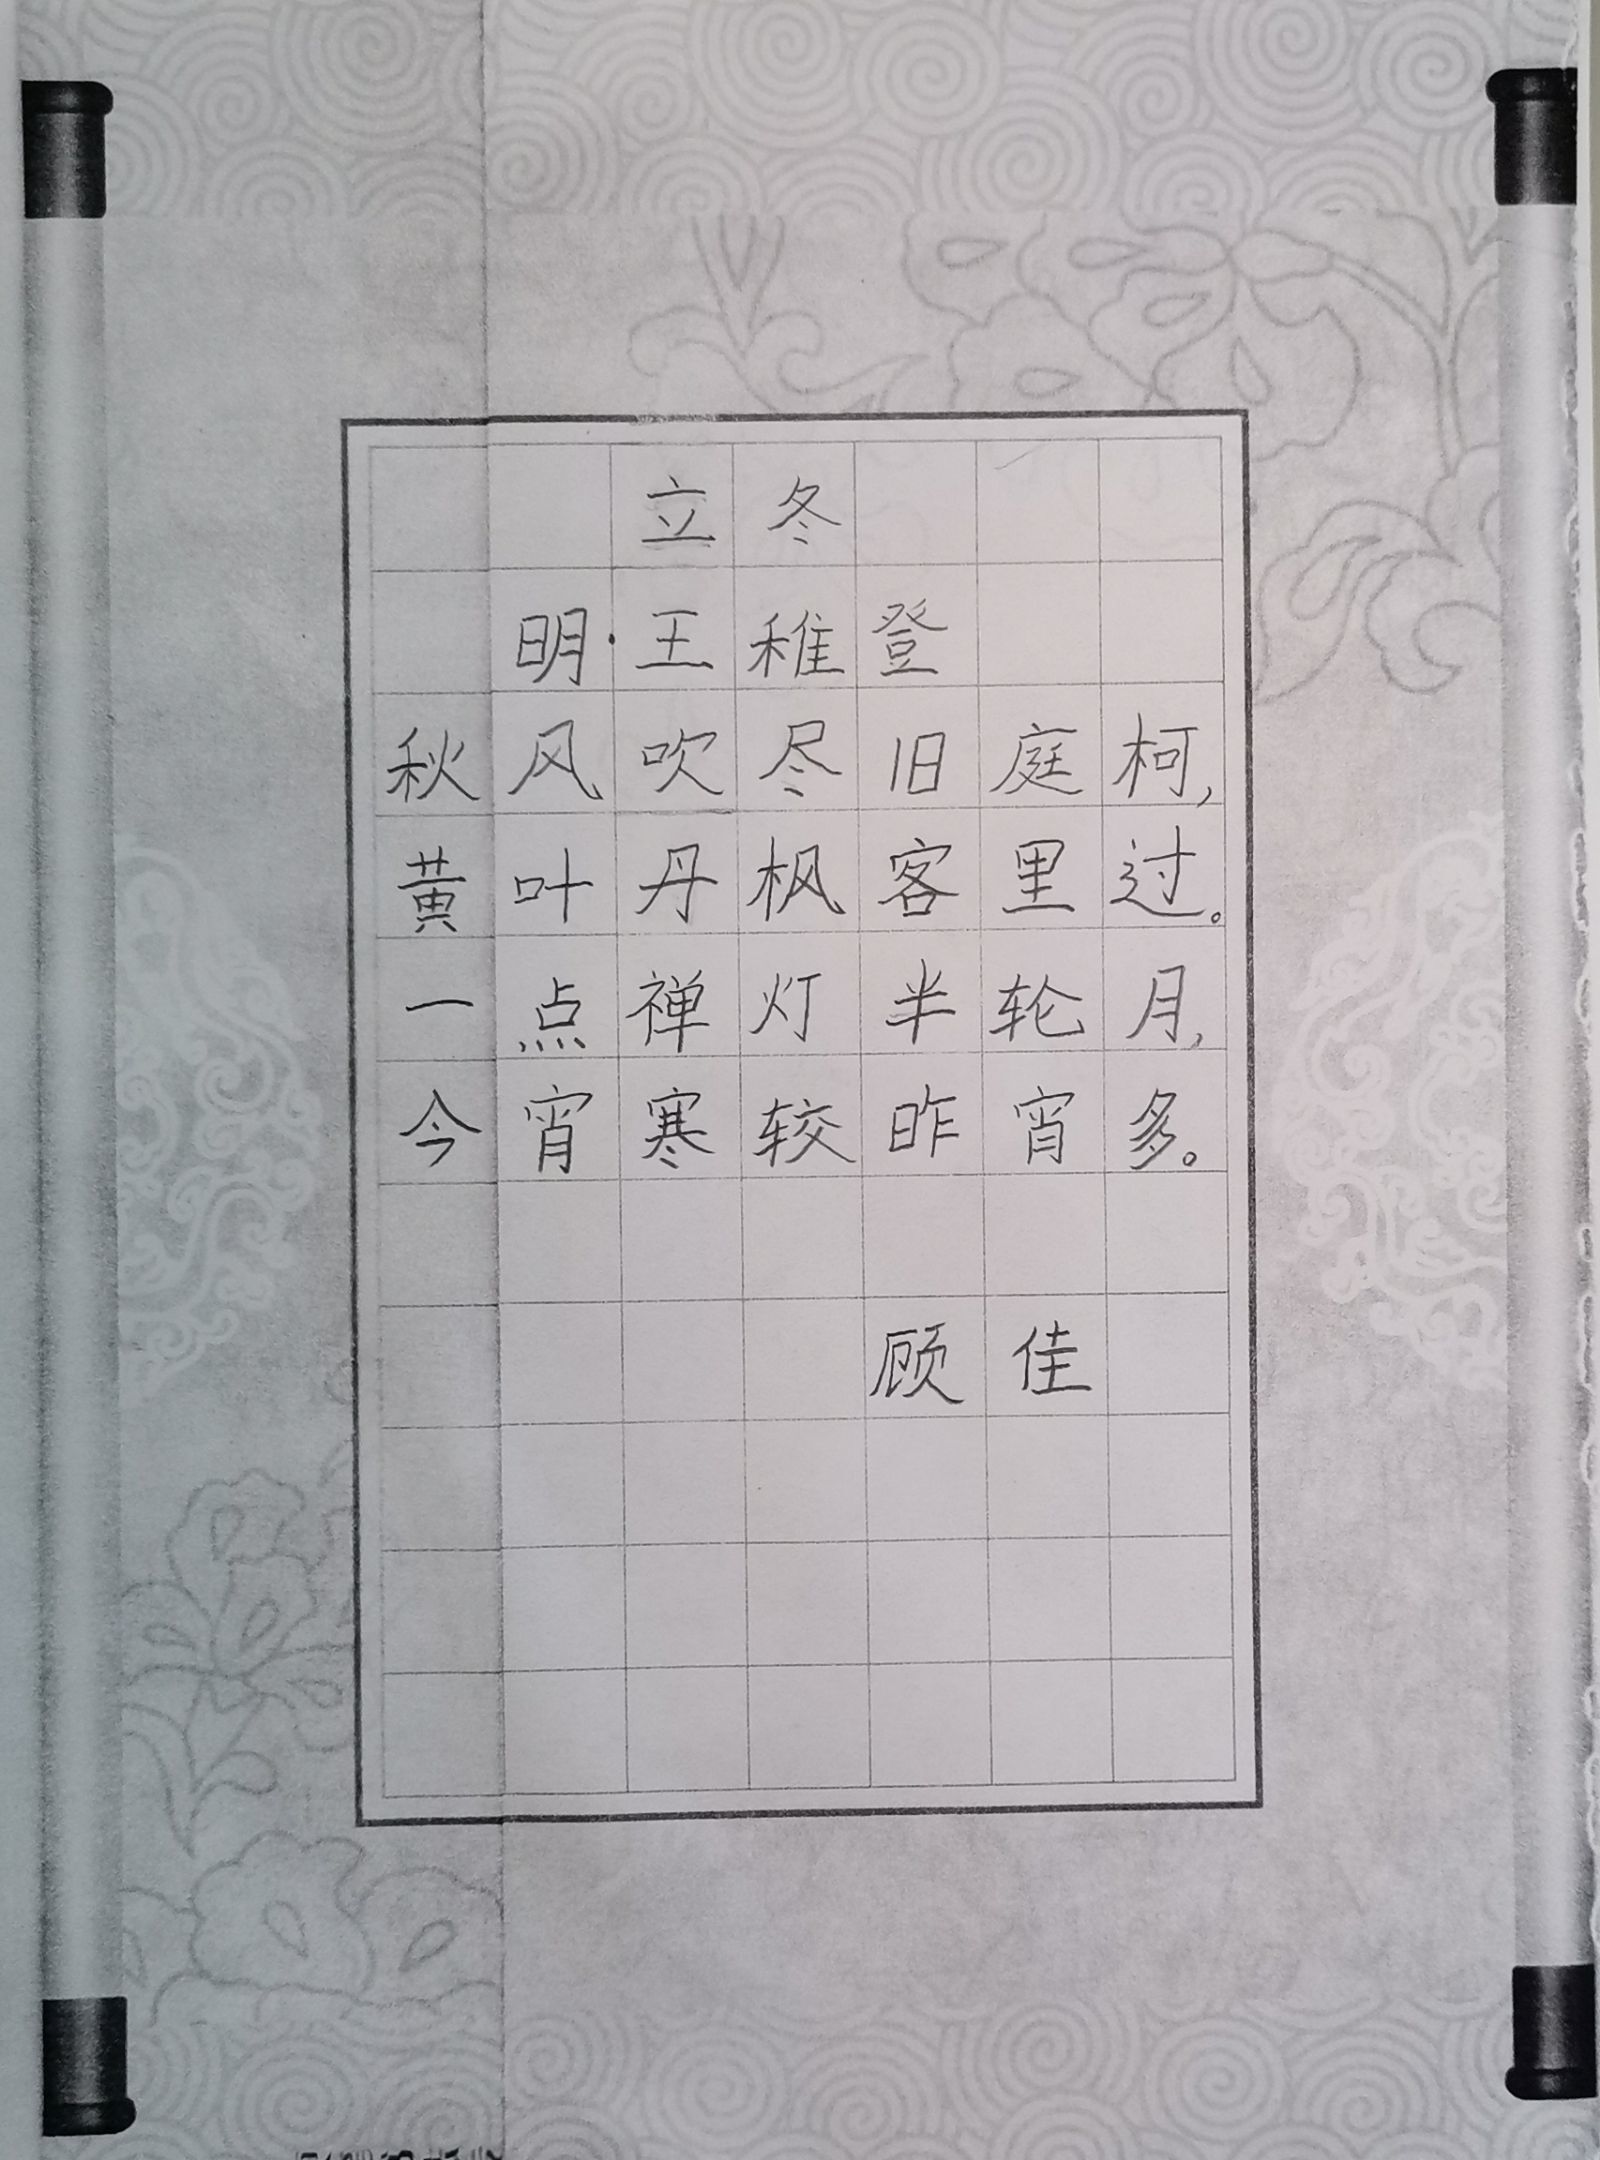 立冬
明·王稚登
秋风吹尽旧庭柯,
黄叶丹枫客里过。
一点禅灯半轮月,
今宵寒较昨宵多。
顾佳